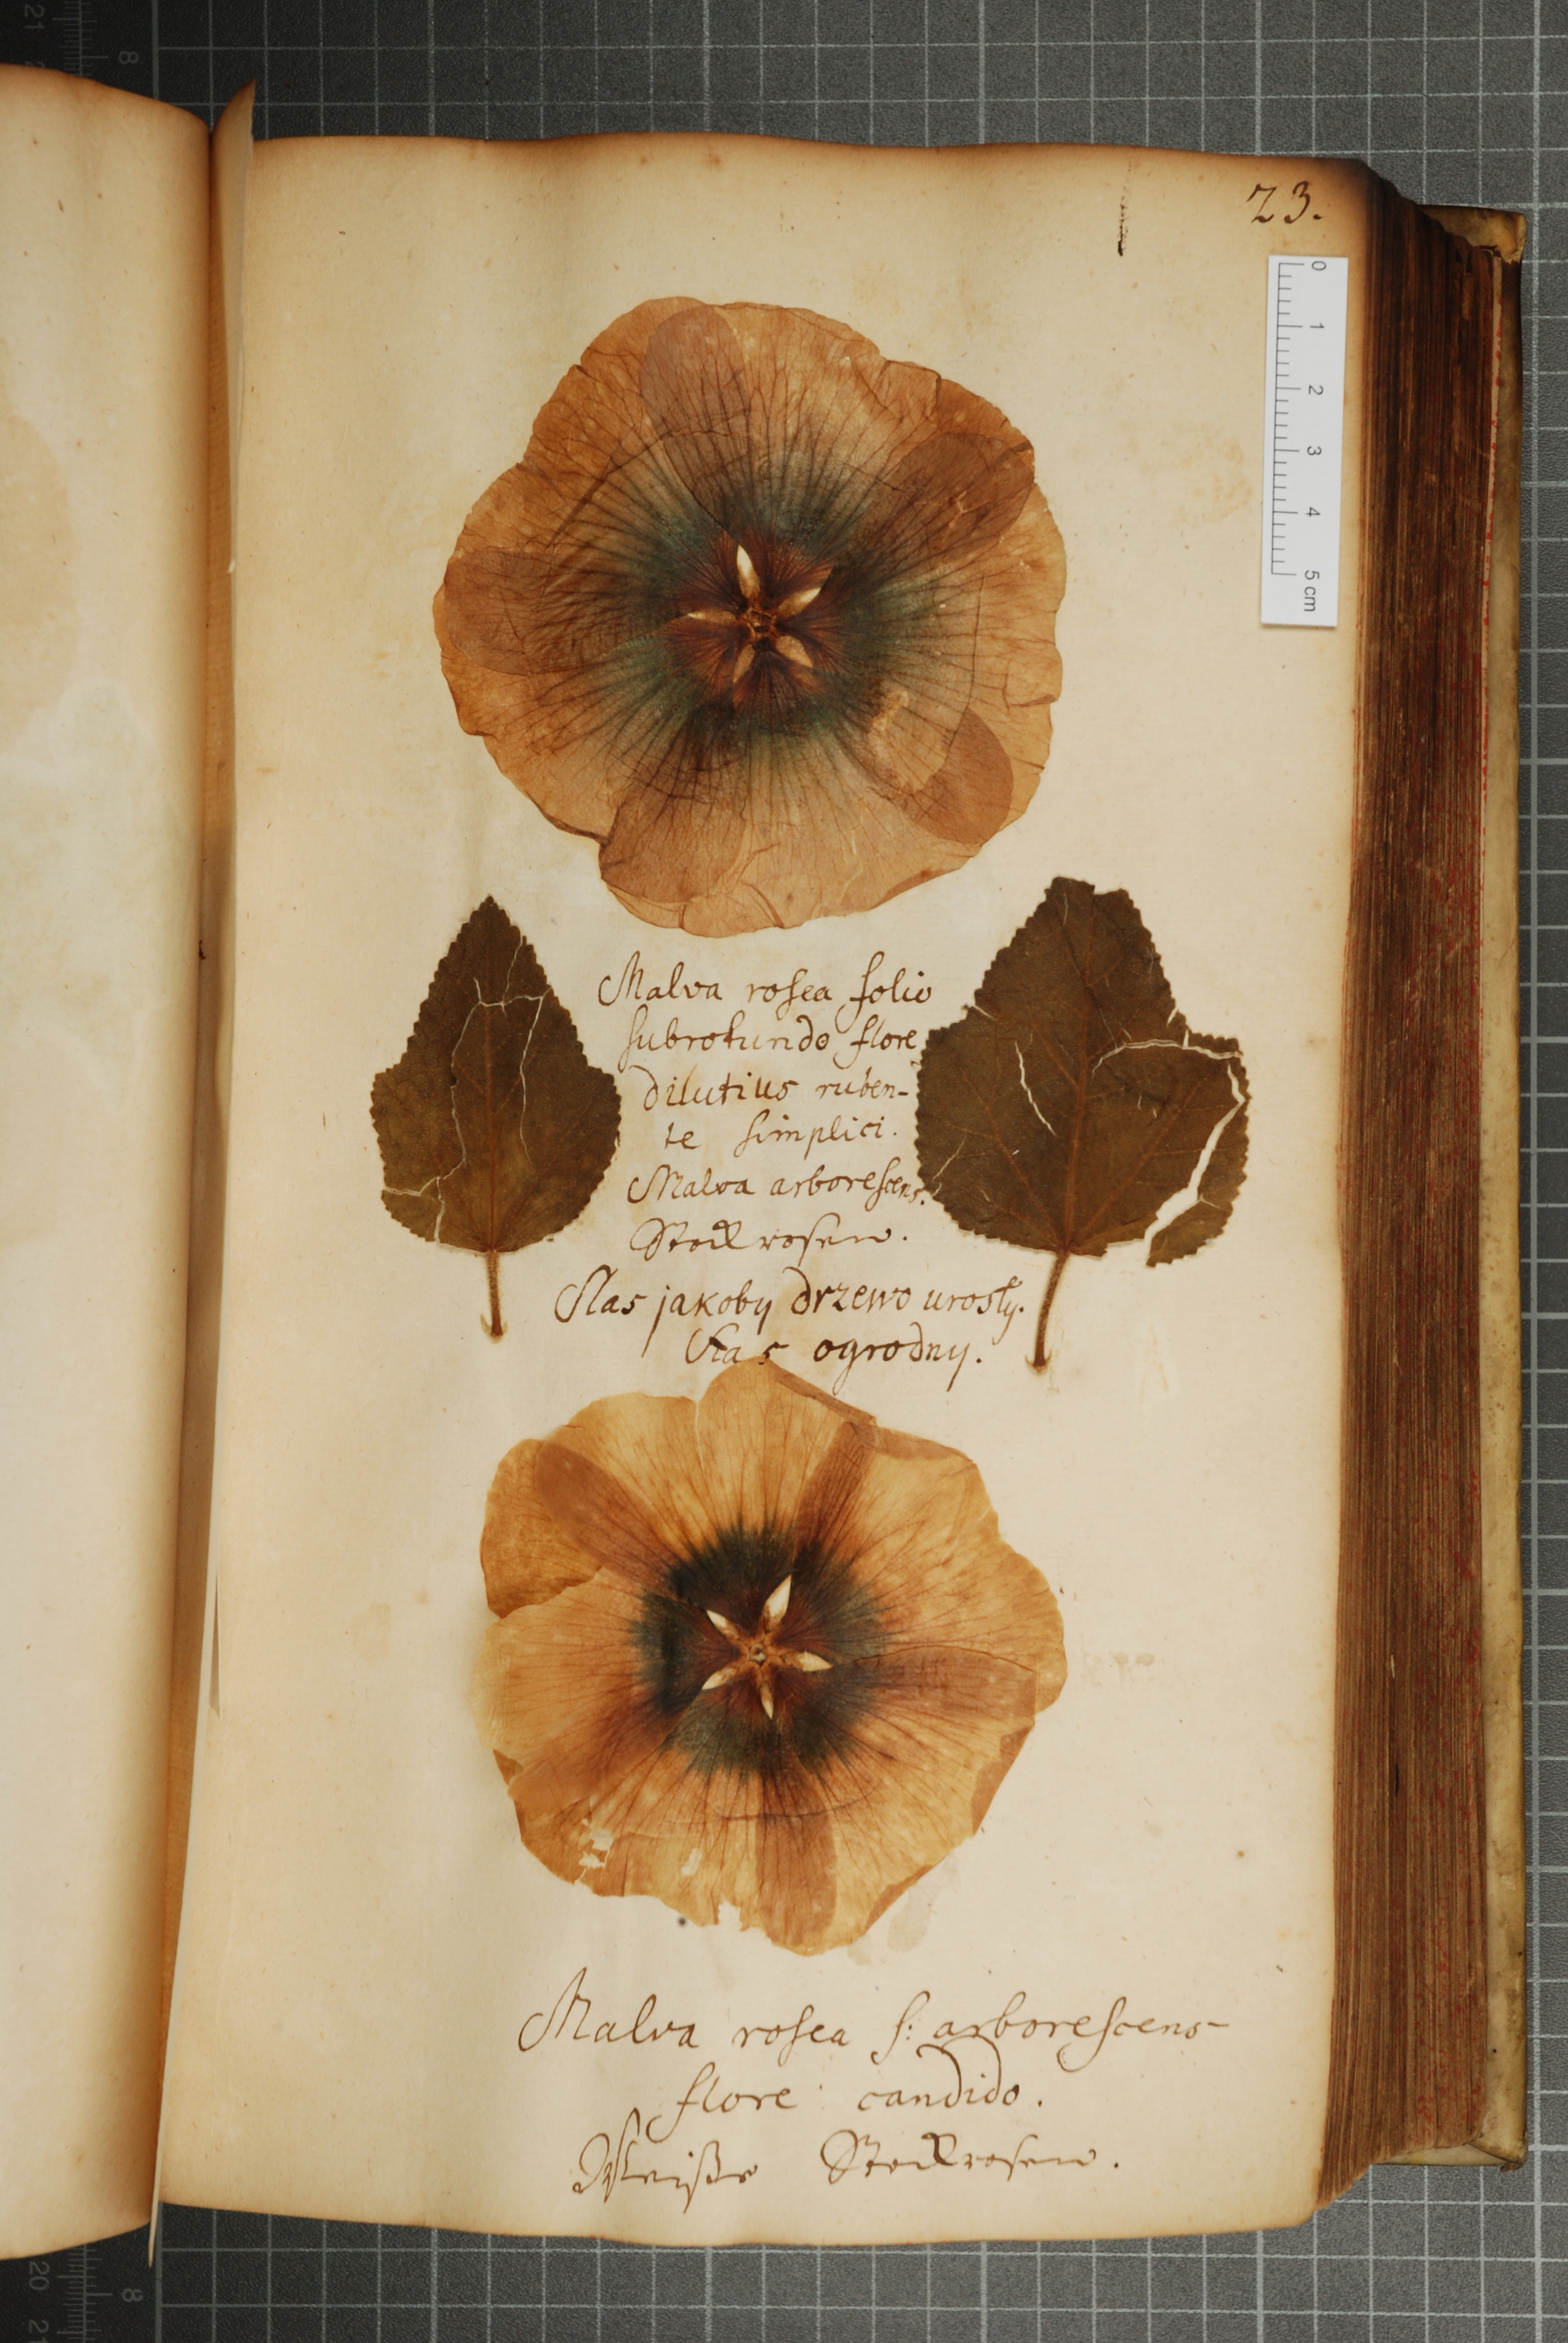 23.
0 1 2 3 4 5 cm
Malva rosea folio
subrotundo flore
dilutius ruben-
te simplici.
Malva arborescens.
Stockrosen.
Slas jakoby drzewo urosły.
Slas ogrodny.
Malva rosea s: arborescens
flore candido.
Weiße Stockrosen.
21
8
20
8
21